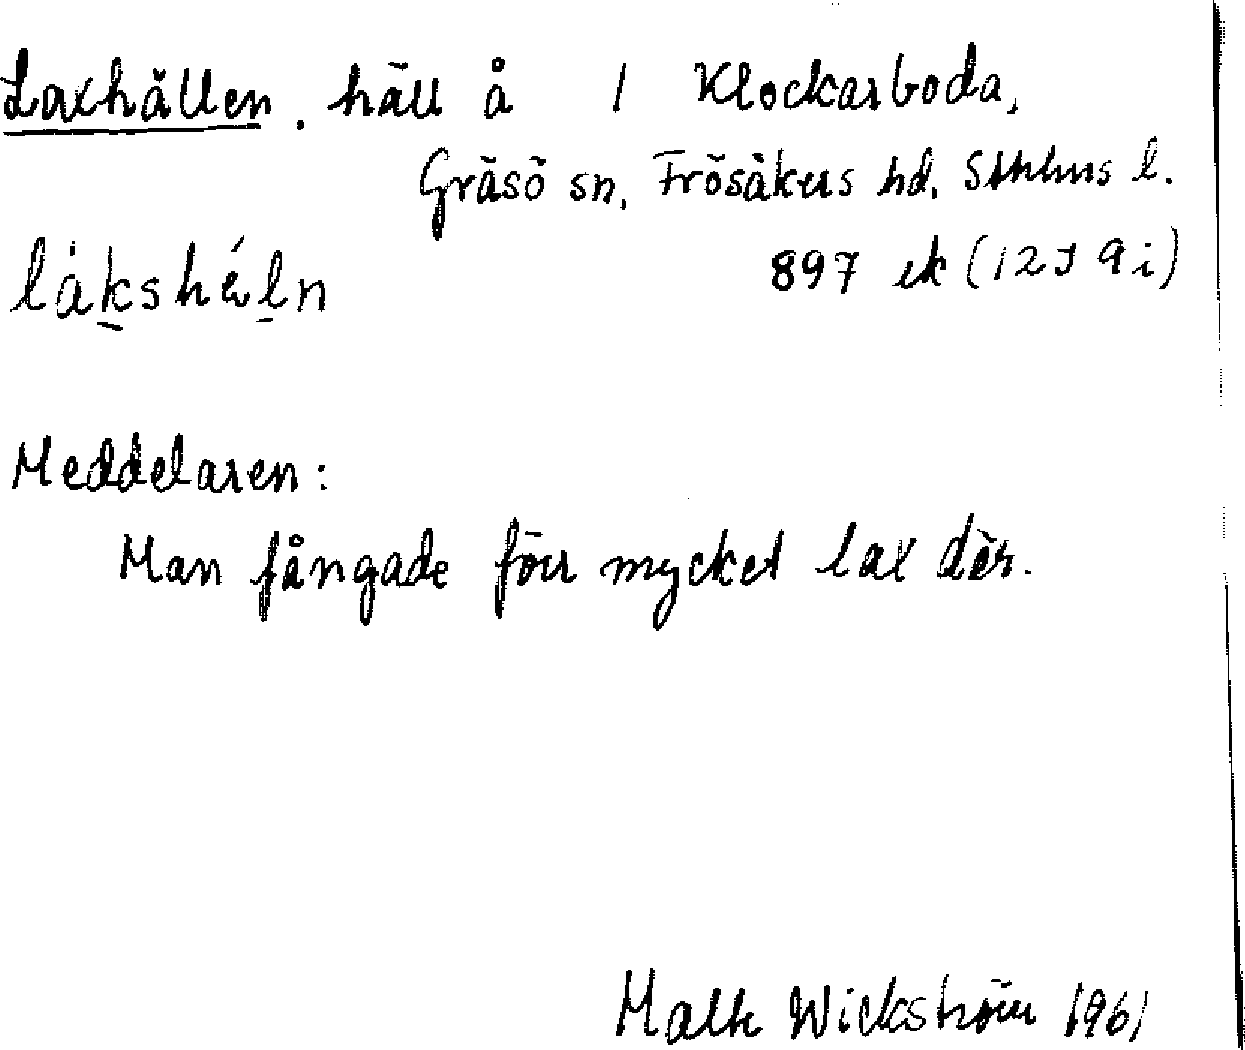 Laxhällen, häll å 1 Klockarboda,
Gräsö sn, Frösåkers hd, Sthlms l.
låkshéln 897 ek (12J 9i)
Meddelaren:
Man fångade förr mycket lax där.
Wickström 1961